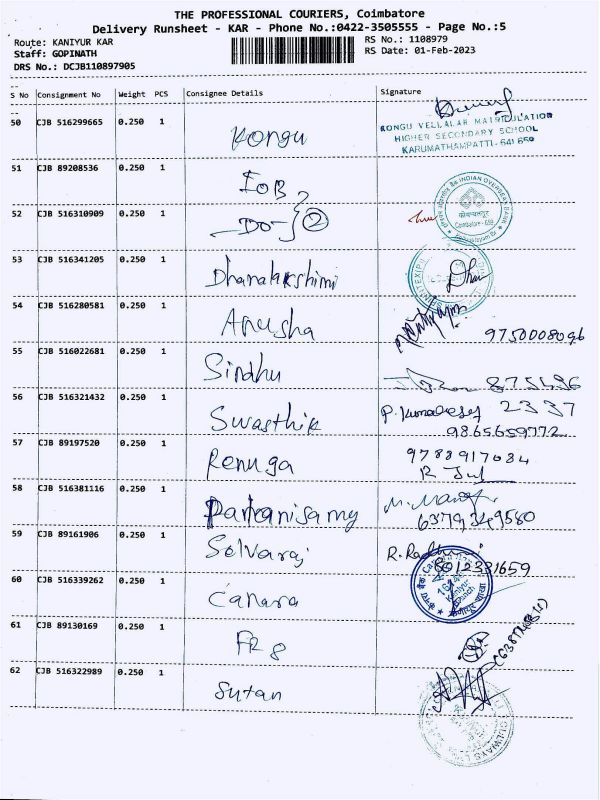 THE PROFESSIONAL COURIERS, Coimbatore
Delivery Runsheet - KAR - Phone No.:0422-3505555 - Page No.:5
Route: KANIYUR KAR
RS No.: 1108979
Staff: GOPINATH
RS Date: 01-Feb-2023
DRS No.: DCJB110897905
S No Consignment No Weight PCS Consignee Details Signature
50 CJB 516299665 0.250 1 Kongu
KONGU VELLALAR MATRICULATION
HIGHER SECONDARY SCHOOL
KARUMATHAMPATTI - 641 659
51 CJB 89208536 0.250 1 IOB
INDIAN OVERSEAS BANK
52 CJB 516310909 0.250 1 -DO- 2
53 CJB 516341205 0.250 1 Dhanalakshimi
54 CJB 516280581 0.250 1 Anusha 9750008096
55 CJB 516022681 0.250 1 Sindhu 875496
56 CJB 516321432 0.250 1 Swasthik 2337
9865659772
57 CJB 89197520 0.250 1 Renuga 9788917084
58 CJB 516381116 0.250 1 Palanisamy
6379349580
59 CJB 89161906 0.250 1 Selvaraj
60 CJB 516339262 0.250 1 Canara
61 CJB 89130169 0.250 1
62 CJB 516322989 0.250 1 Sutan